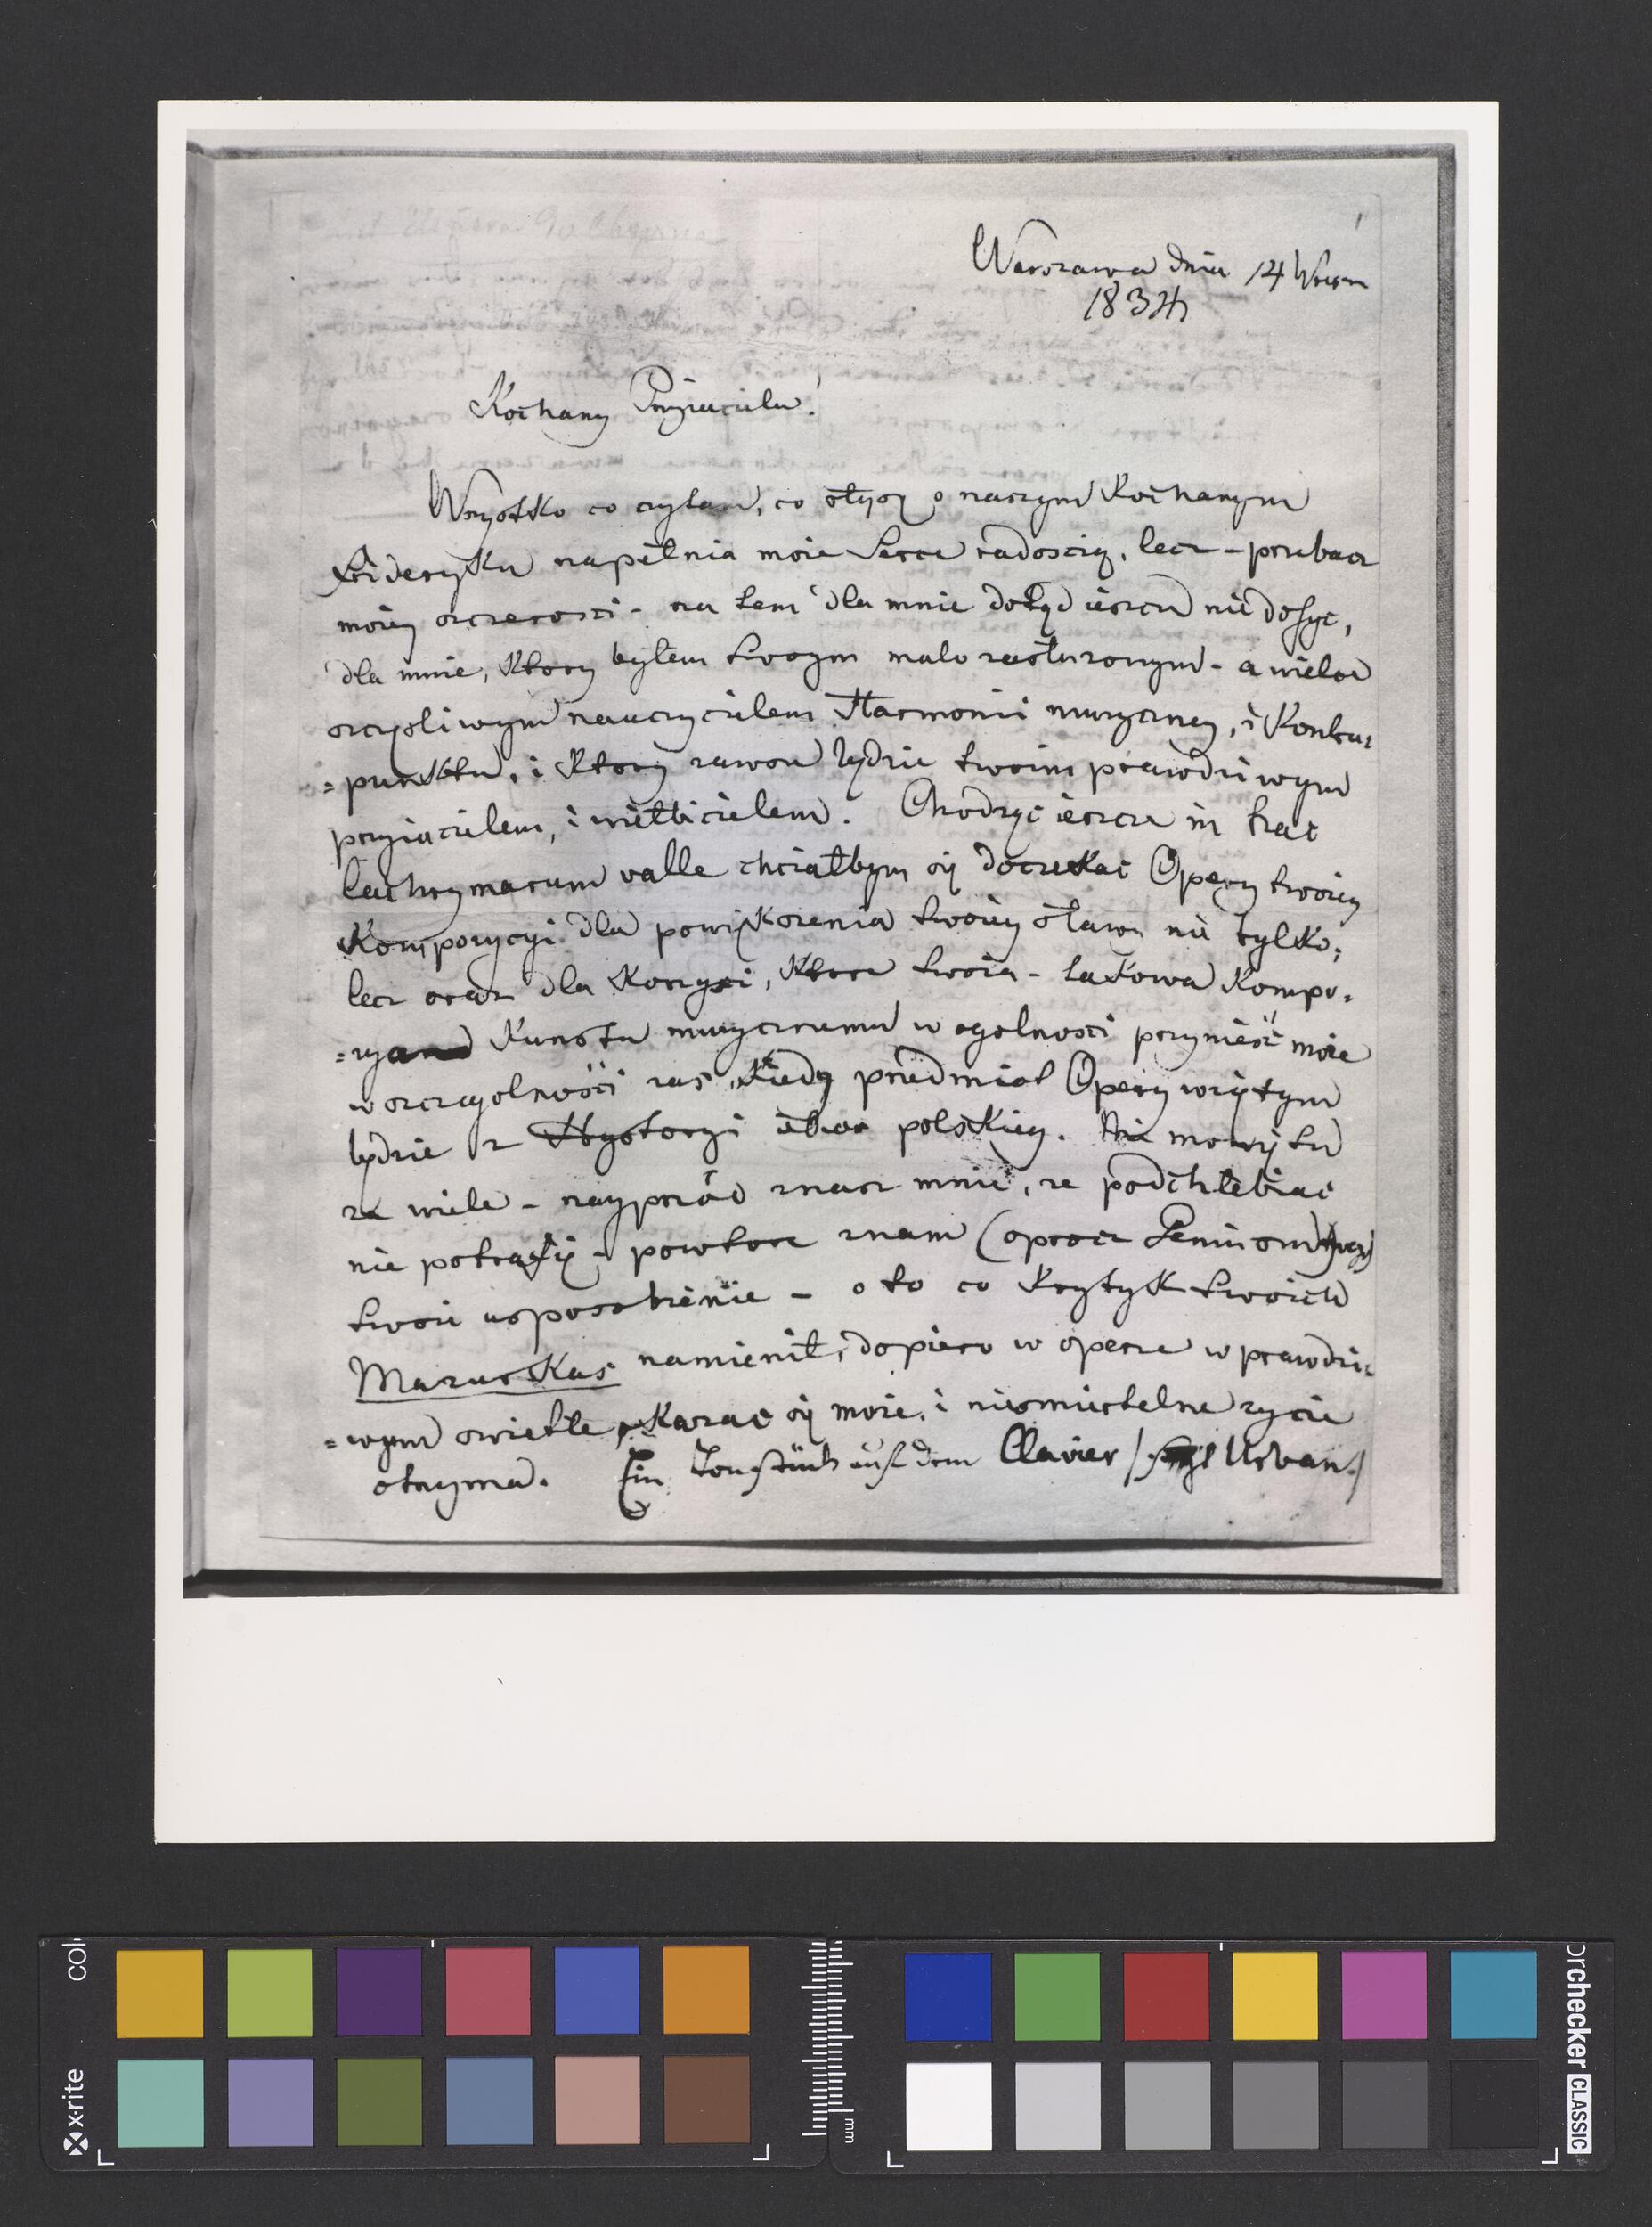 Warszawa dnia 14 Wrzes
1834
Kochany Przyiacielu!
Wszystko co czytam, co słyszę o naszym kochanym
Frideryku napełnia moie Serce radoscią, lecz – przebacz
moiey szczerosci – na tem dla mnie dotąd ieszcze nie dosyc,
dla mnie, ktory byłem twoym malo zasłuzonym – a wielce
szczęsliwym nauczycielem Harmonii muzyczney, i Kontra=
=punktu, i ktory zawsze będzie twoim prawdziwym
przyiacielem, i wielbicielem. Chodząc ieszcze in hac
lachrymarum valle chciałbym się doczekac Opery twoiey
Kompozycyi dla powiększenia twoiey sławy nie tylko,
lecz oraz dla korzysci, ktore twoia – takowa Kompo=
=zya Kunstu muzycznemu w ogolnosci przyniesć może
w szczegolności zas, kiedy przedmiot Opery wziętym
będzie z Hystoryi polskiey. Nie mowię tu
za wiele – nayprzód znasz mnie, ze podchlebiac
nie potrafię – powtore znam (oprocz Geniuszu
twoie usposobienie – o to co krytyk twoich
Mazurkas namienił, dopiero w operze w prawdzi=
=wym swietle pokazac się może, i niesmiertelne zycie
otrzyma. Ein Tonstück auf dem Clavier / Urban./
x-rite
col
mm
orchecker CLASSIC